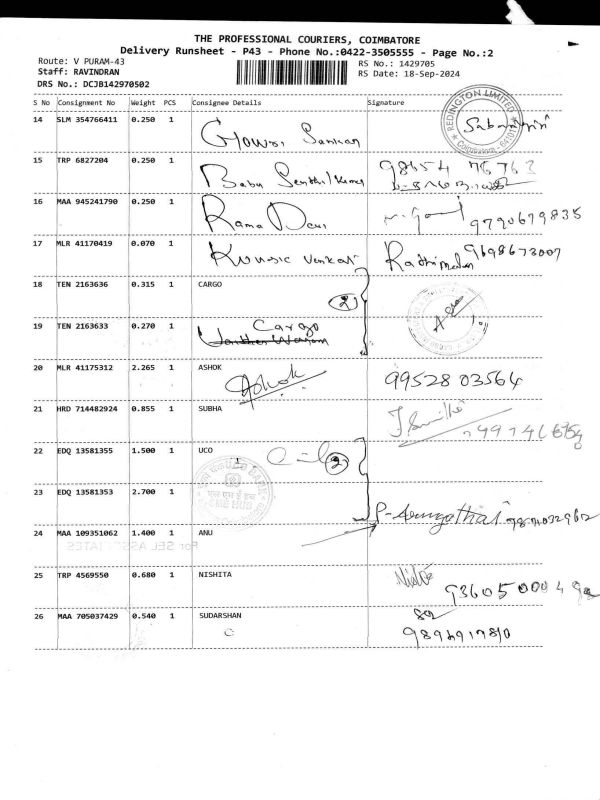 THE PROFESSIONAL COURIERS, COIMBATORE
Delivery Runsheet - P43 - Phone No.:0422-3505555 - Page No.:2
Route: V PURAM-43
RS No.: 1429705
Staff: RAVINDRAN
RS Date: 18-Sep-2024
DRS No.: DCJB142970502
S No Consignment No Weight PCS Consignee Details Signature
14 SLM 354766411 0.250 1 Gowri Sankar
REDINGTON LIMITED
15 TRP 6827204 0.250 1 Babu Senthil Kumar
16 MAA 945241790 0.250 1 Rama Devi 9790679835
17 MLR 41170419 0.070 1 Venkat 9698673007
18 TEN 2163636 0.315 1 CARGO
2
19 TEN 2163633 0.270 1 Cargo
20 MLR 41175312 2.265 1 ASHOK
Ashok 99528 03564
21 HRD 714482924 0.855 1 SUBHA
22 EDQ 13581355 1.500 1 UCO
2
23 EDQ 13581353 2.700 1
24 MAA 109351062 1.400 1 ANU
For SEL ASSOCIATES
25 TRP 4569550 0.680 1 NISHITA
26 MAA 705037429 0.540 1 SUDARSHAN